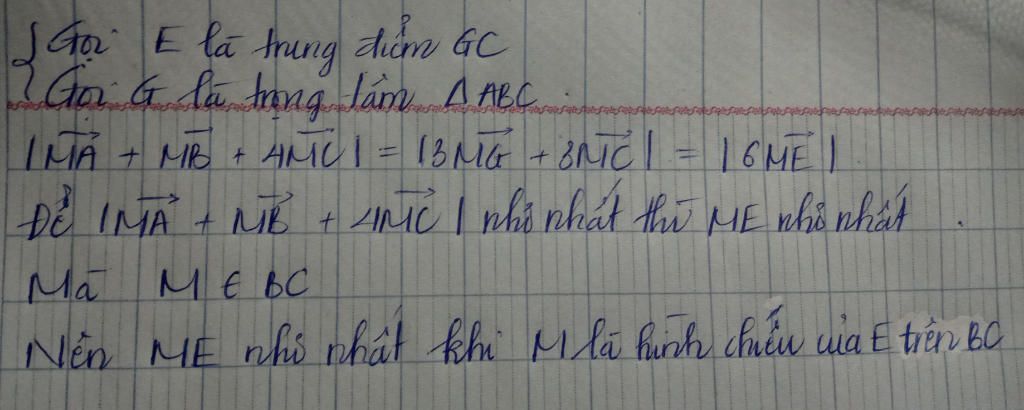 Gọi E là trung điểm GC
Gọi G là trọng tâm ΔABC.
|MA + MB + 4MC| = |3MG + 3MC| = |6ME|
Để |MA + MB + 4MC| nhỏ nhất thì ME nhỏ nhất.
Mà M ∈ BC
Nên ME nhỏ nhất khi M là hình chiếu của E trên BC